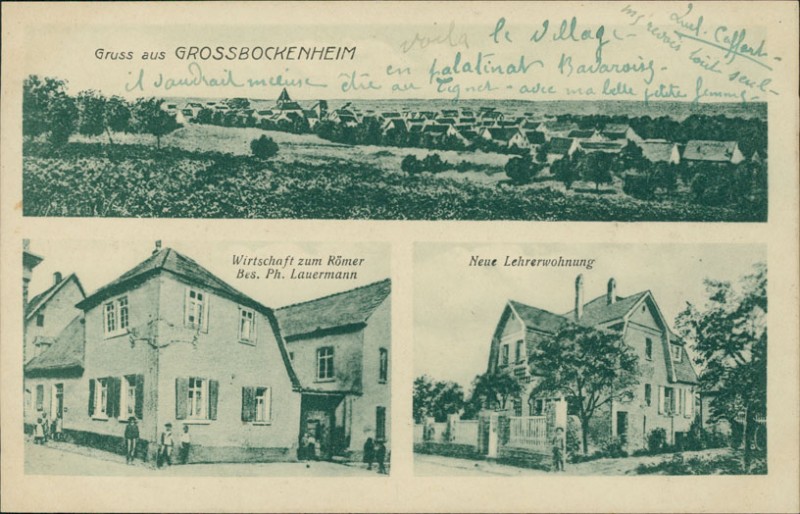 voila le village
Gruss aus GROSSBOCKENHEIM
en palatinat Bavarois
il vaudrait mieux être au avec ma belle petite femme
tout seul
Wirtschaft zum Römer
Bes. Ph. Lauermann
Neue Lehrerwohnung